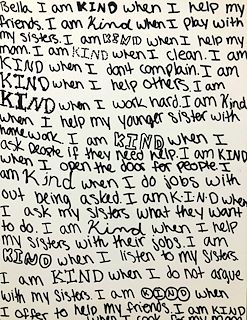 Bella. I am KIND when I help my
friends. I am Kind when I play with
my sisters. I am KIND when I help my
mom. I am KIND when I clean. I am
KIND when I dont complain. I am
KIND when I help others. I am
KIND when I work hard. I am Kind
when I help my younger sister with
homework. I am KIND when I
ask people if they need help. I am KIND
when I open the door for people. I
am Kind when I do jobs with
out being asked. I am K·I·N·D when
I ask my sisters what they want
to do. I am Kind when I help
my sisters with their jobs. I am
KIND when I listen to my sisters.
I am KIND when I do not argue
with my sisters. I am KIND when
I offer to help my friends. I am KIND